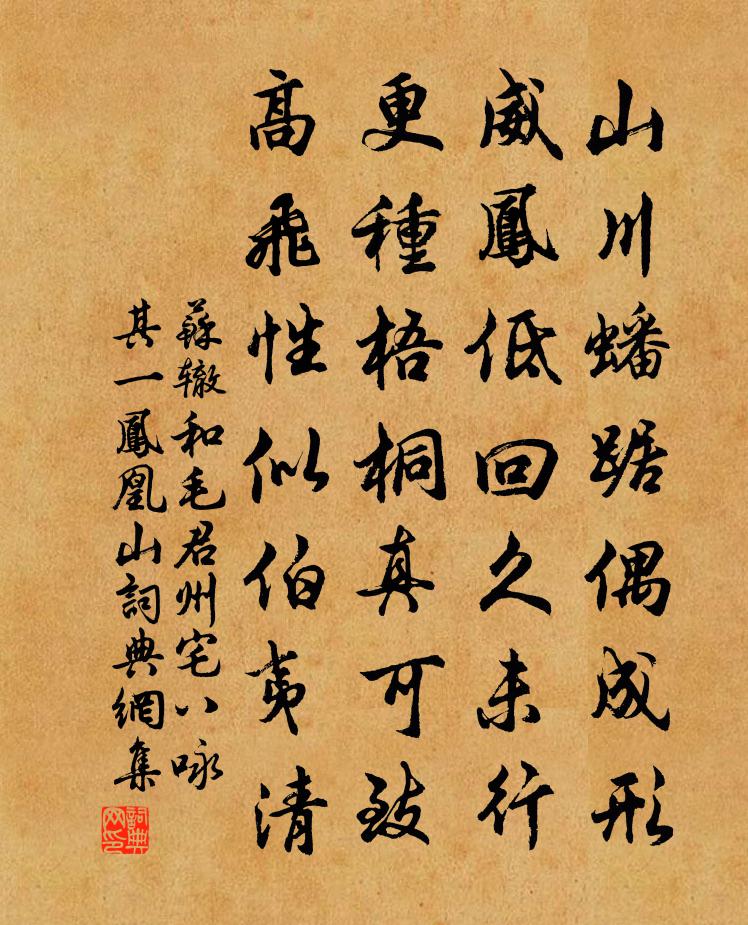 山川蟠踞偶成形
威鳳低回久未行
更種梧桐真可致
高飛性似伯夷清
蘇辙和毛君州宅八咏
其一鳳凰山詞典網集
詞典
网印